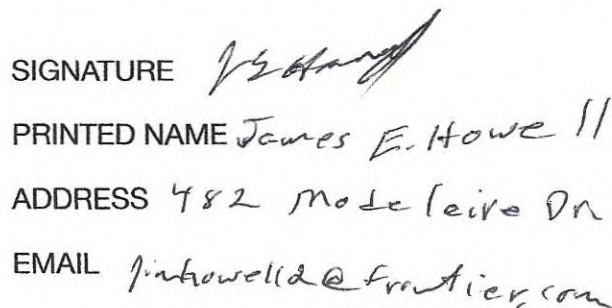 SIGNATURE
PRINTED NAME James E. Howell
ADDRESS 482 Modeleire Dr
EMAIL jimhowell2@frontier.com